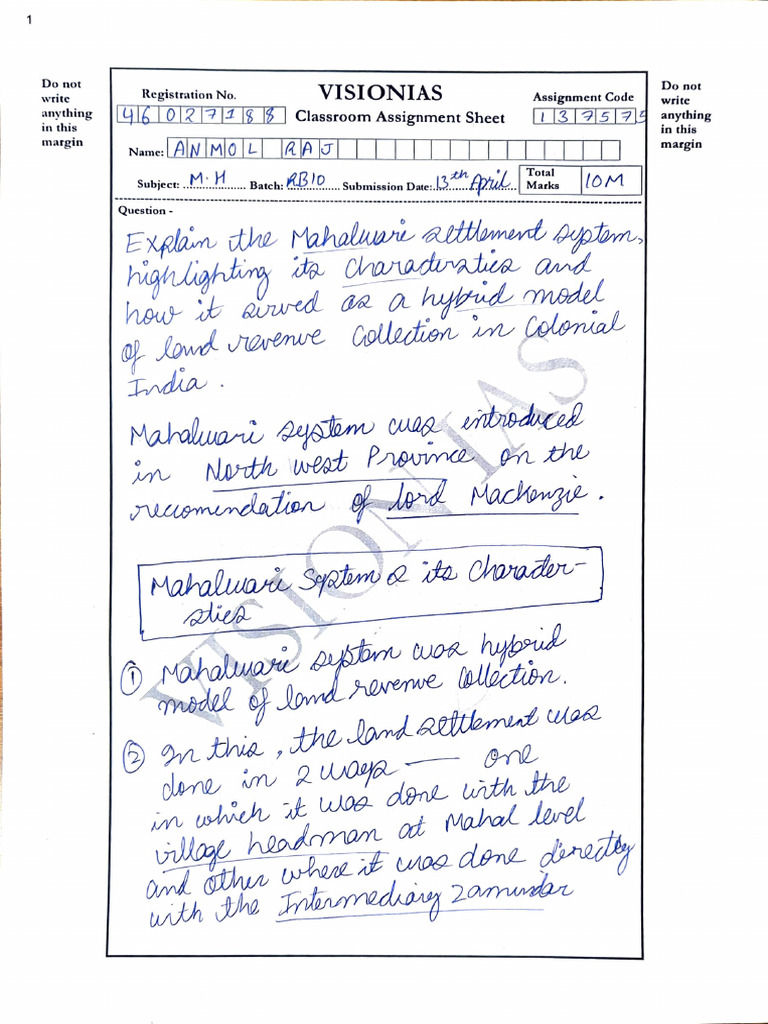 1
Do not
write
anything
in this
margin
VISIONIAS
Registration No.
46027188
Classroom Assignment Sheet
Assignment Code
137575
Name: ANMOL RAJ
Subject: M.H Batch: RB10 Submission Date: 13th April
Total
Marks
10M
Do not
write
anything
in this
margin
Question -
Explain the Mahalwari settlement system,
highlighting its Characterstics and
how it served as a hybrid model
of land revenue Collection in Colonial
India.
Mahalwari system was introduced
in North west Province on the
reccomendation of lord Mackenzie.
Mahalwari System & its Character-
stics
① Mahalwari system was hybrid
model of land revenue Collection.
② In this, the land settlement was
done in 2 ways — one
in which it was done with the
village headman at Mahal level
and other where it was done directly
with the Intermediary zamindar
VISION IAS